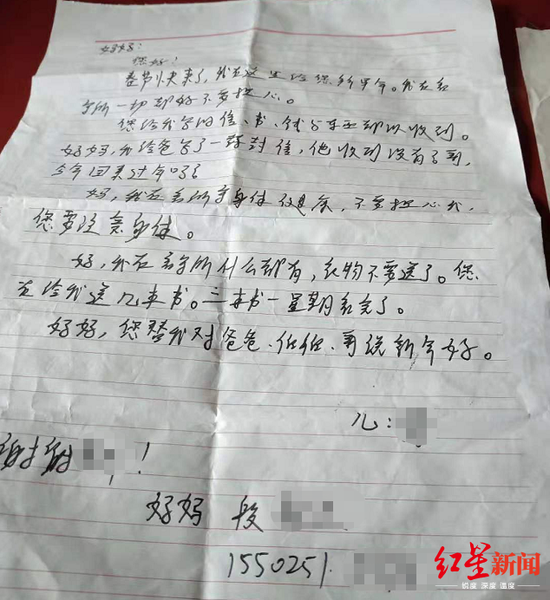 妈妈：
您好！
春节快来了，我在这里给您拜早年。我在看
守所一切都好不要担心。
您给我写的信、书、钱与东西都以收到。
妈妈，我给爸写了一封信，他收到没有
今年回来过年吗？
妈，我在看所守身体健康，不要担心我，
您要注意身体。
妈，我在看守所什么都有，衣物不要送了。您
在给我送几本书。三本书一星期看完了。
妈妈，您替我对爸爸、伯伯、哥说新年好。
儿：
谢谢！
妈妈 段
1550251
红星新闻
锐度 深度 温度